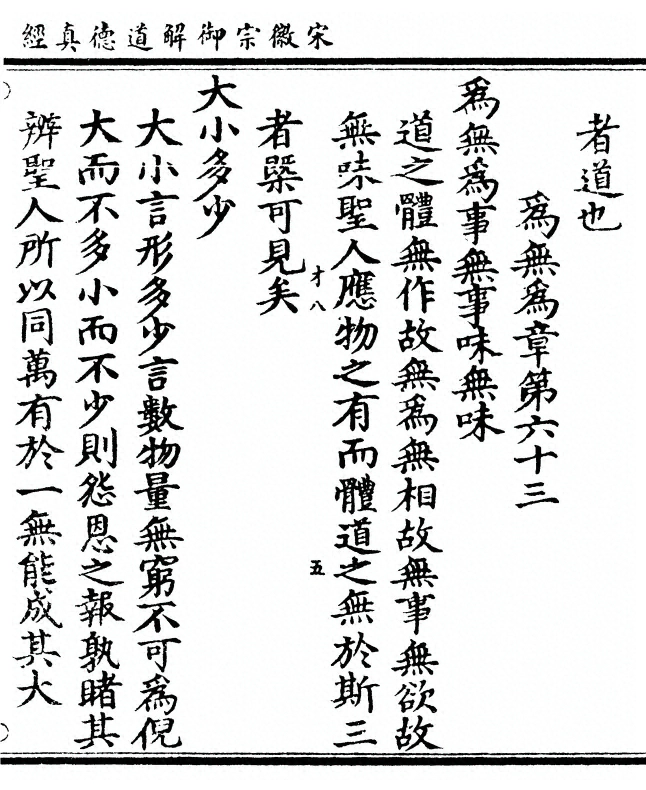 宋徽宗御解道德真經
者道也
爲無爲章第六十三
爲無爲事無事味無味
道之體無作故無爲無相故無事無欲故
無味聖人應物之有而體道之無於斯三
才八
五
者槩可見矣
大小多少
大小言形多少言數物量無窮不可爲倪
大而不多小而不少則怨恩之報孰睹其
辨聖人所以同萬有於一無能成其大